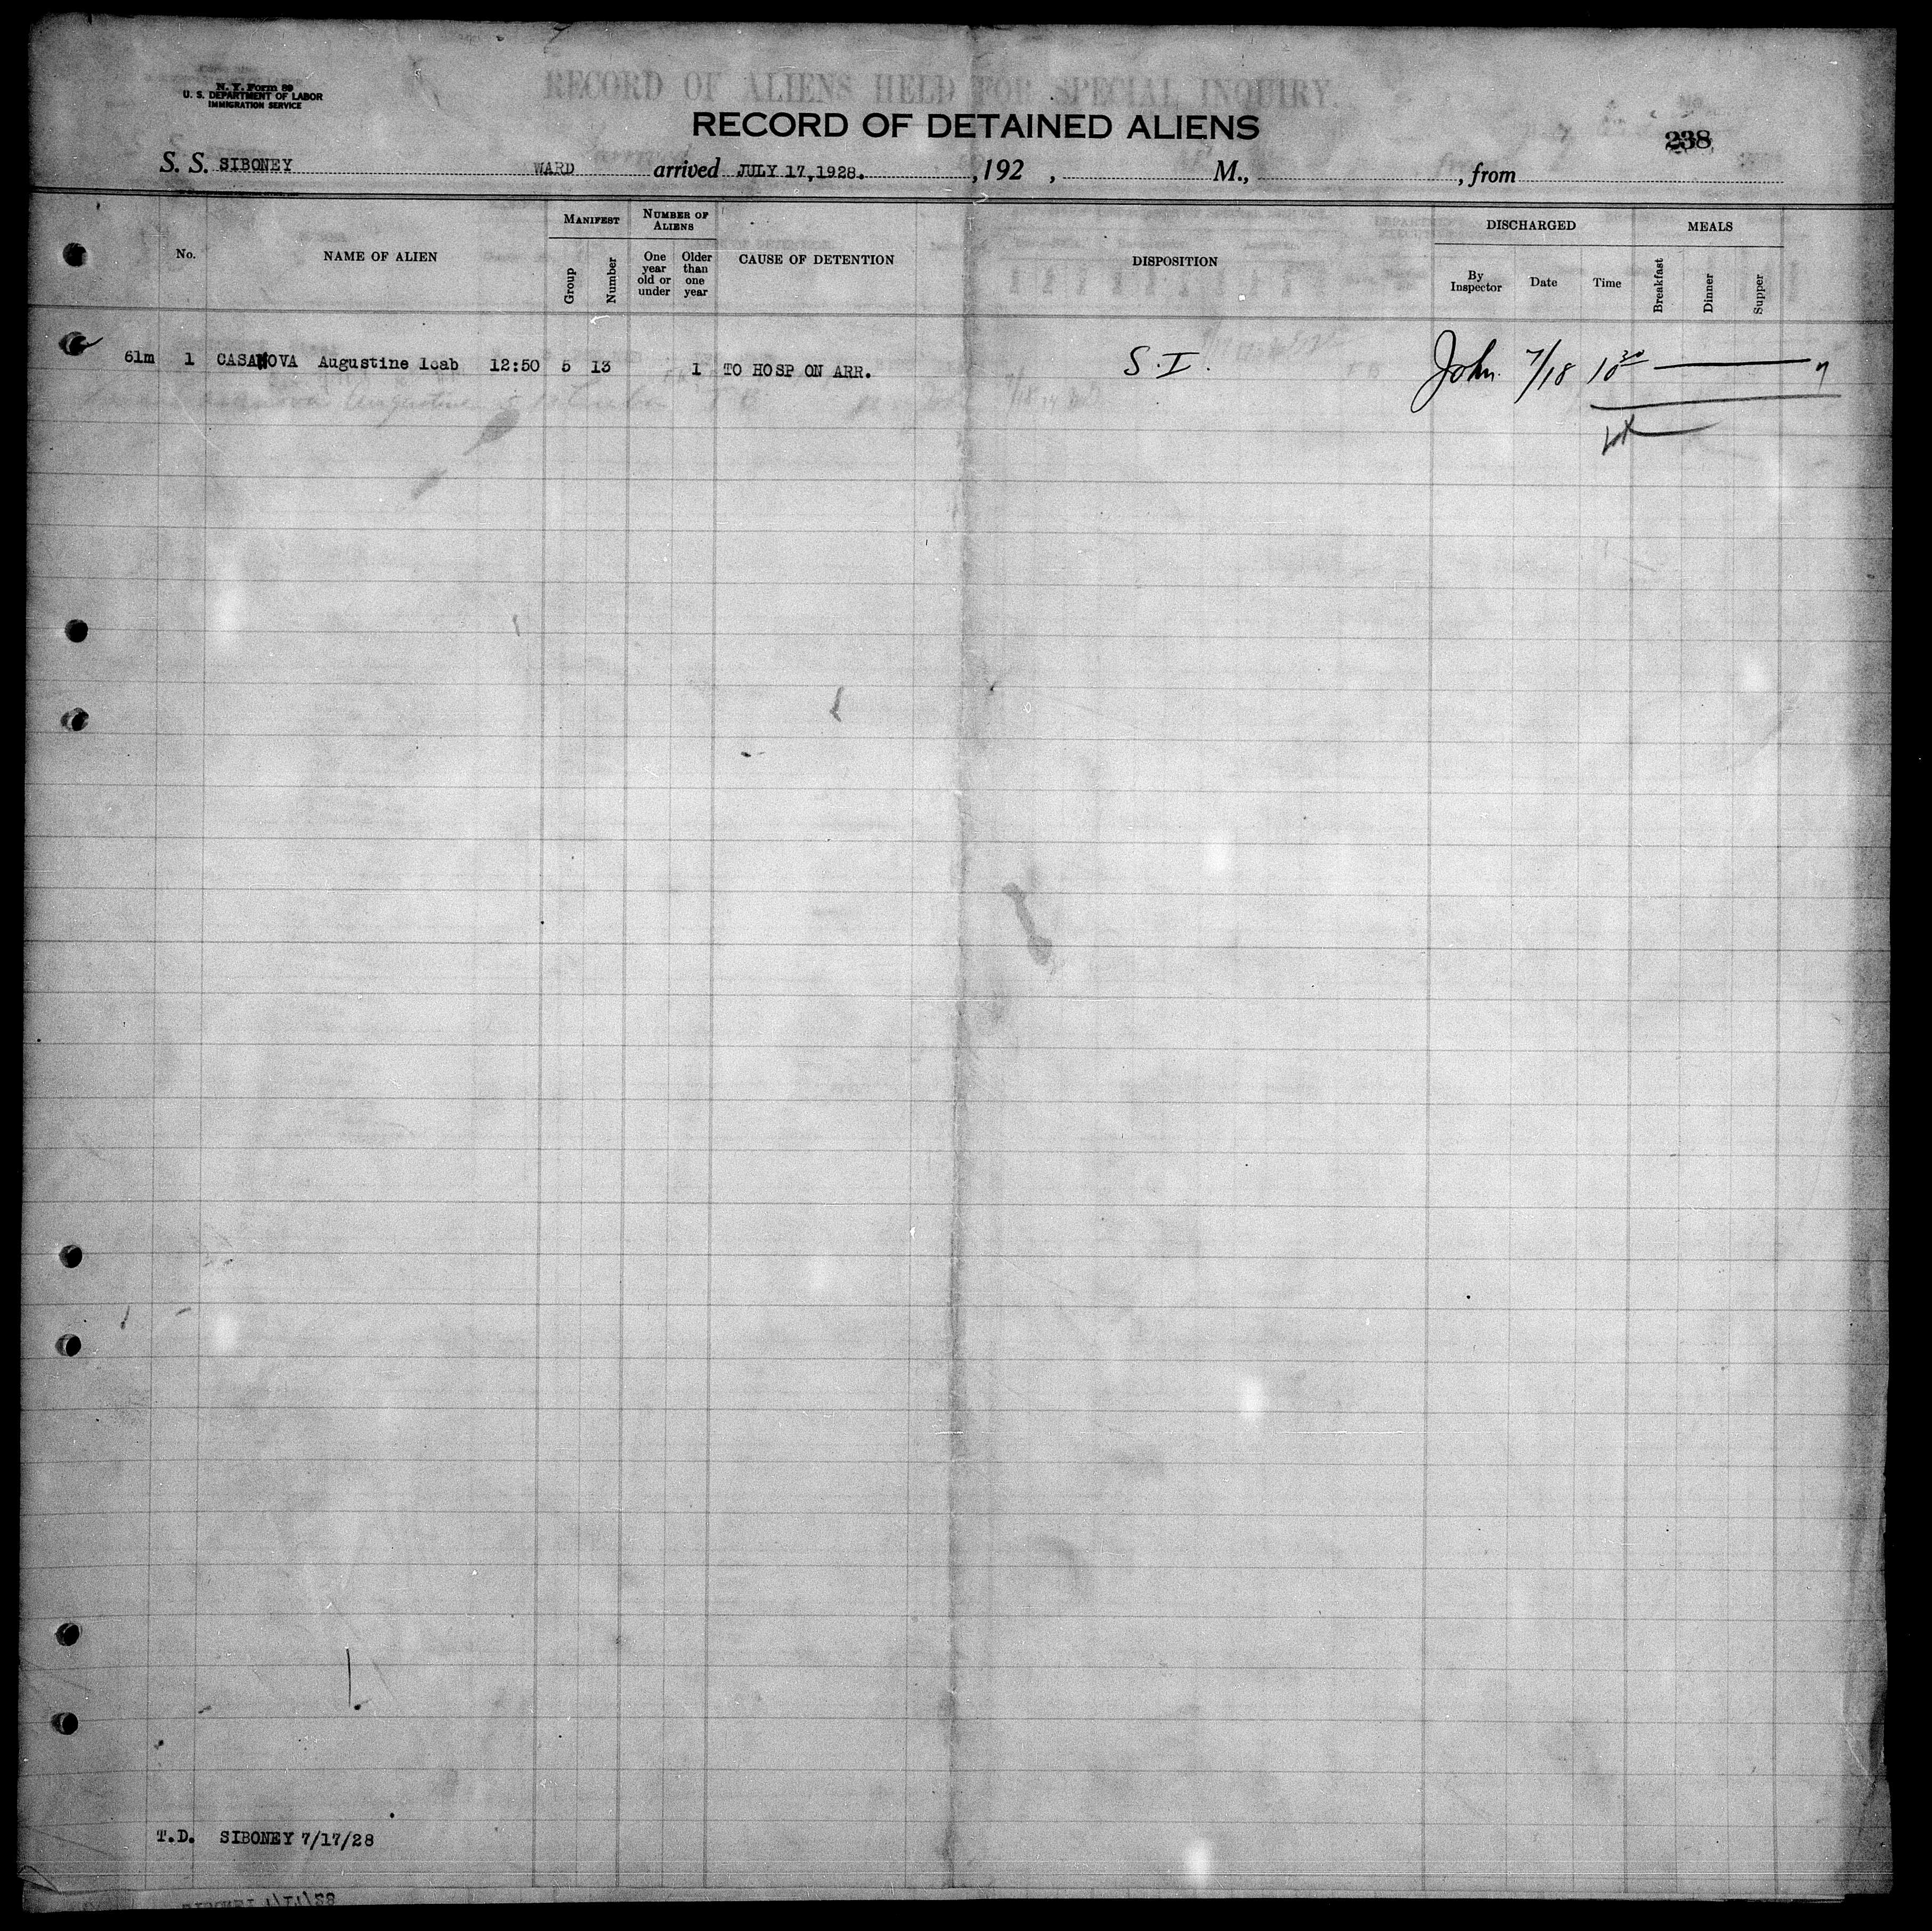 N. Y. Form 89
U. S. DEPARTMENT OF LABOR
IMMIGRATION SERVICE
RECORD OF ALIENS HELD FOR SPECIAL INQUIRY.
RECORD OF DETAINED ALIENS
238
S. S. SIBONEY WARD arrived JULY 17,1928. ,192 , M., , from
No. NAME OF ALIEN MANIFEST NUMBER OF ALIENS CAUSE OF DETENTION DISPOSITION DISCHARGED MEALS
Group Number One year old or under Older than one year By Inspector Date Time Breakfast Dinner Supper
61m 1 CASANOVA Augustine 1cab 12:50 5 13 1 TO HOSP ON ARR. S.I. John. 7/18 10 30
T.D. SIBONEY 7/17/28